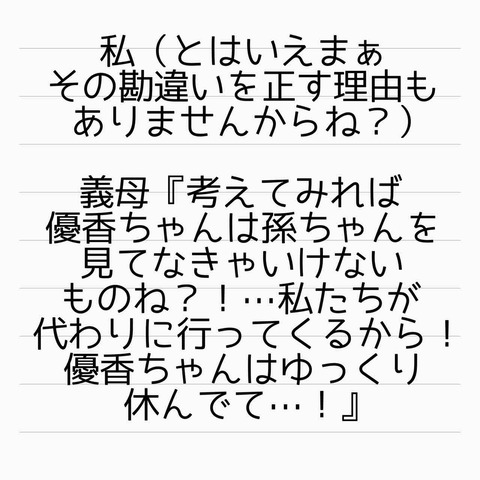 私（とはいえまぁ
その勘違いを正す理由も
ありませんからね？）
義母『考えてみれば
優香ちゃんは孫ちゃんを
見てなきゃいけない
ものね？！…私たちが
代わりに行ってくるから！
優香ちゃんはゆっくり
休んでて…！』